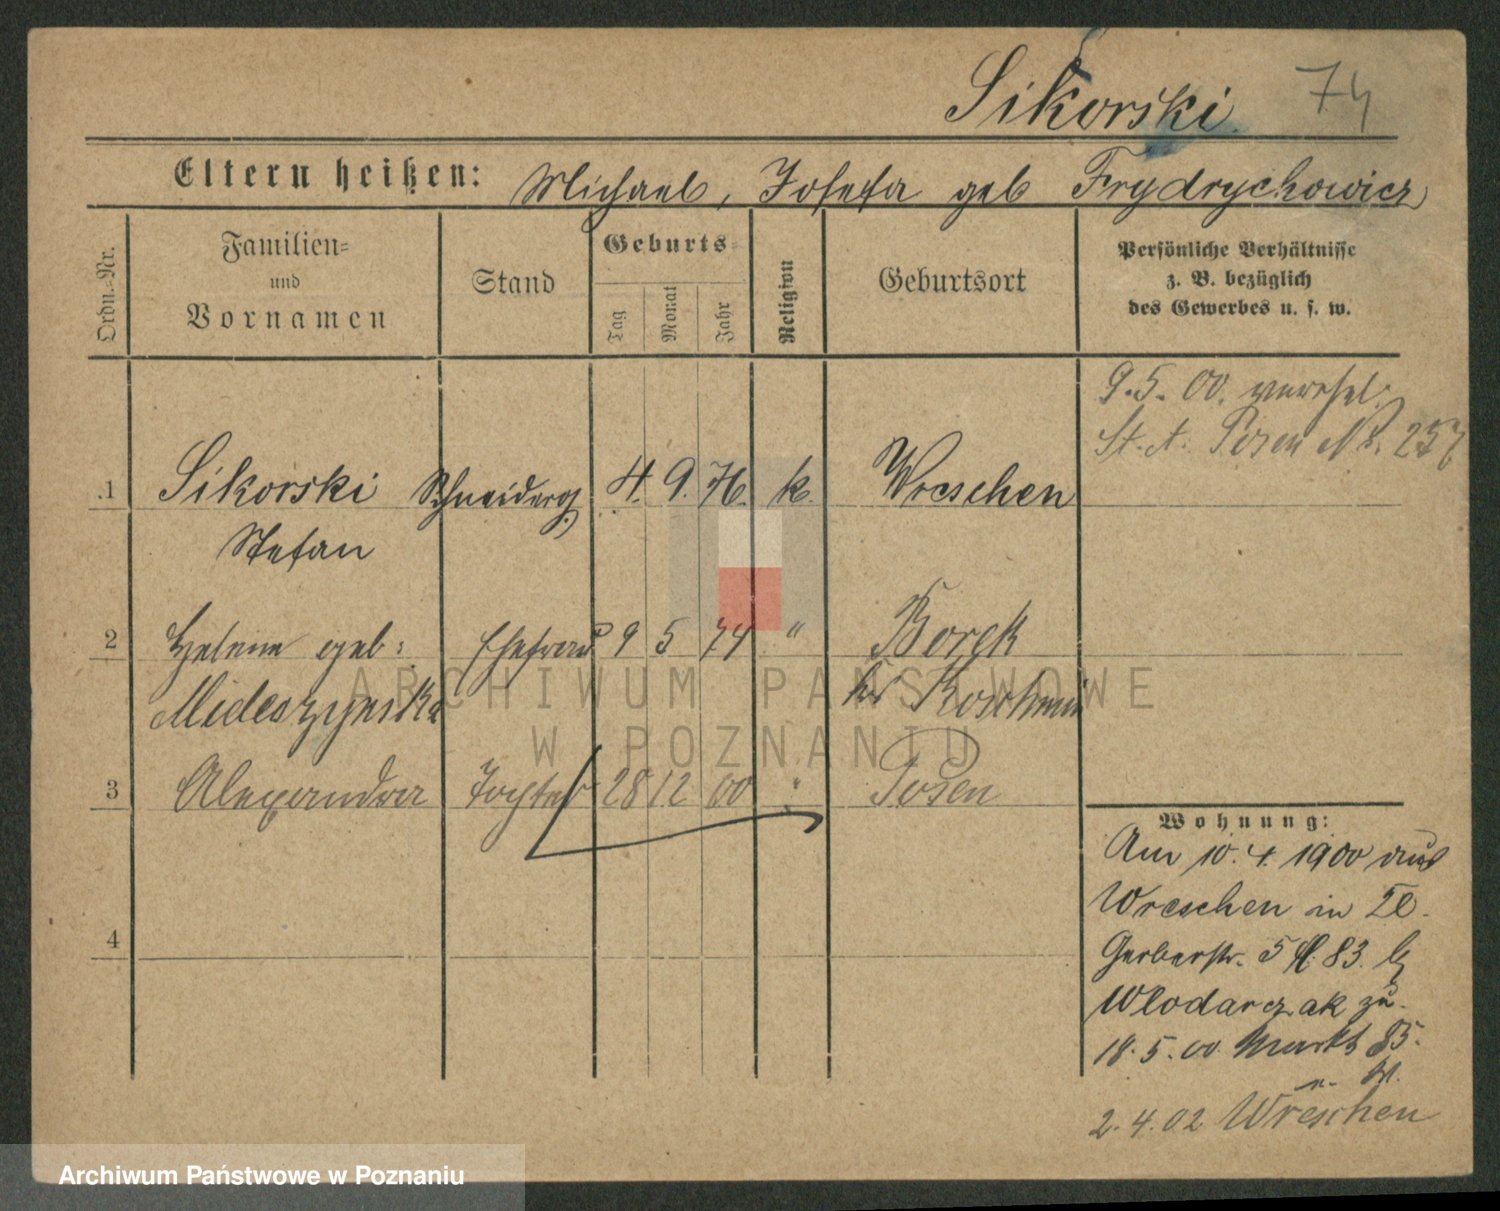 Sikorski. 74
Eltern heißen: Michael, Josefa geb Frydrychowicz
Ordn.-Nr.
Familien-
und
Vornamen
Stand
Geburts-
Tag
Monat
Jahr
Religion
Geburtsort
Persönliche Verhältnisse
z. B. bezüglich
des Gewerbes u. s. w.
9.5. 00. verehel.
St. A. Posen No. 257
1 Sikorski Schneiderg. 4. 9. 76. k. Wreschen
Stefan
2 Helene geb: Ehefrau 9 5 74 " Borek
Kr Koschmin
3 Alexandra Tochter 28 12 00 " Posen
4
Wohnung:
Am 10. 4. 1900 aus
Wreschen in
Gerberstr. 5 83. b
Wlodarczak zu.
18. 5. 00 Markt 85.
2. 4. 02 Wreschen
ARCHIWUM PAŃSTWOWE
W POZNANIU
Archiwum Państwowe w Poznaniu